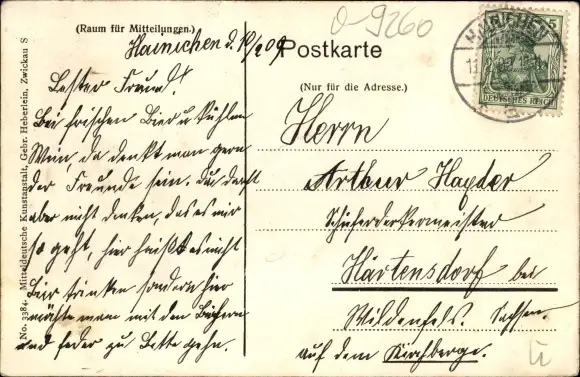 (Raum für Mitteilungen.)
Hainichen d. 10/2 09
Postkarte
O-9260
HAINICHEN
5
DEUTSCHES REICH
(Nur für die Adresse.)
Lester Freund!
Bei frischen Bier u kühlen
Wein, da denkt man gern
der Freunde sein. Du darfst
aber nicht denken, das es mir
so geht, hier heißt es nicht
Bier trinken sondern hier
möchte man mit den Büchern
und feder zu Bette gehn.
Herrn
Arthur Hayder
Schieferdeckermeister
Härtensdorf bei
Wildenfels. Sachsen.
auf dem Kirchberge.
No. 3384. Mitteldeutsche Kunstanstalt, Gebr. Heberlein, Zwickau S